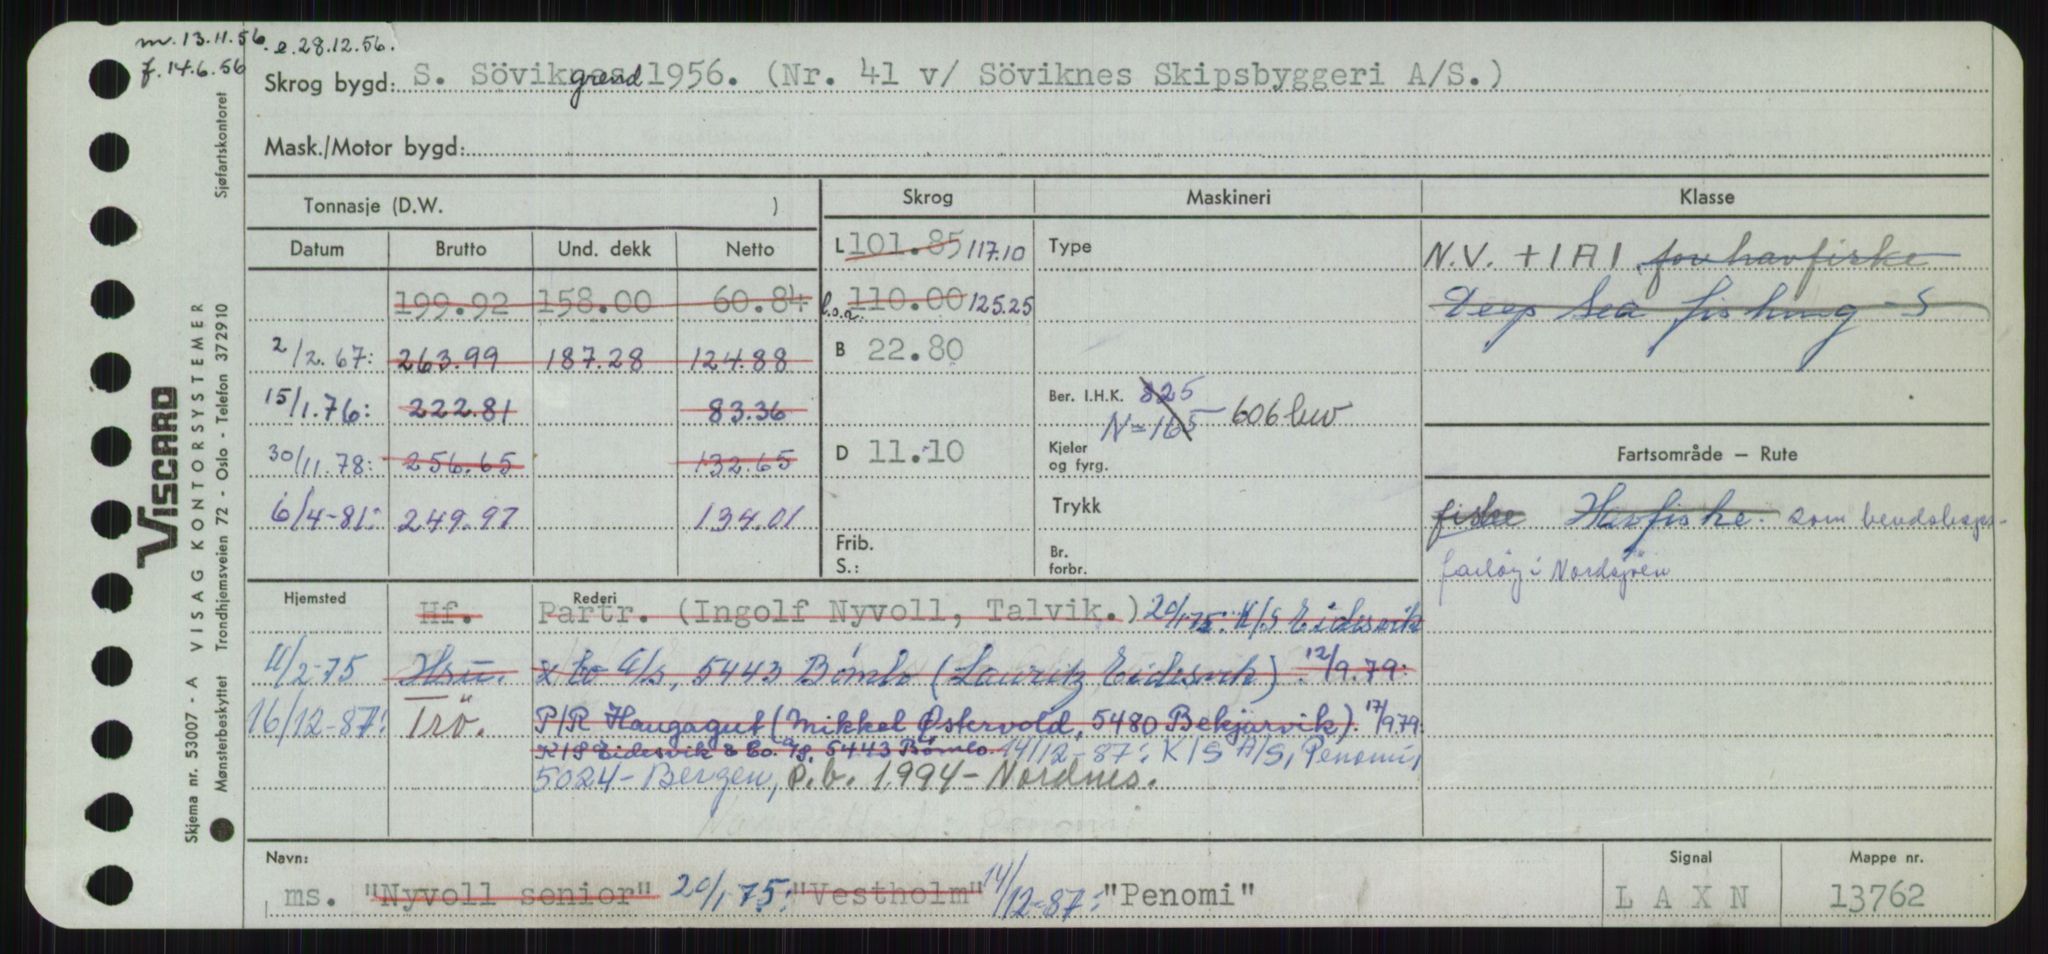 m. 13.11.56. e. 28.12.56.
f. 14.6.56
Skrog bygd: S. Söviknes grend 1956. (Nr. 41 v/ Söviknes Skipsbyggeri A/S.)
Mask./Motor bygd:
Sjøfartskontoret
VISCARD
VISAG KONTORSYSTEMER
Trondhjemsveien 72 - Oslo - Telefon 372910
Skjema nr. 53007 - A
Mønsterbeskyttet
Tonnasje (D.W. )
Skrog Maskineri Klasse
Datum Brutto Und. dekk Netto
L 101.85 117.10 Type N.V. + 1A1 for havfiske
199.92 158.00 60.84 l.o.a. 110.00 125.25 Deep Sea fishing - S
2/2.67: 263.99 187.28 124.88 B 22.80
15/1.76: 222.81 83.36 Ber. I.H.K. 825
N=165 606 bw
30/11.78: 256.65 132.65 D 11.10 Kjeler og fyrg. Fartsområde – Rute
6/4-81: 249.97 134.01 Trykk fiske Havfiske. som
Frib. Br. i Nordsjøen
S.: forbr.
Hjemsted Rederi
Hf. Partr. (Ingolf Nyvoll, Talvik.) 20/1.75: K/S Eidesvik
11/2-75 & Co A/S, 5443 Bømlo (Lauritz Eidesvik). 12/9.79:
16/12-87: Trö. P/R Haugagut (Mikkel Østervold, 5480 Bekjarvik). 17/9.79:
K/S Eidesvik & Co. A/S, 5443 Bømlo. 14/12-87: K/S A/S, Penomi,
5024 - Bergen, p.b. 1994 - Nordnes.
Navn: Signal Mappe nr.
ms. "Nyvoll senior" 20/1 75: "Vestholm" 14/12-87: "Penomi" LAXN 13762